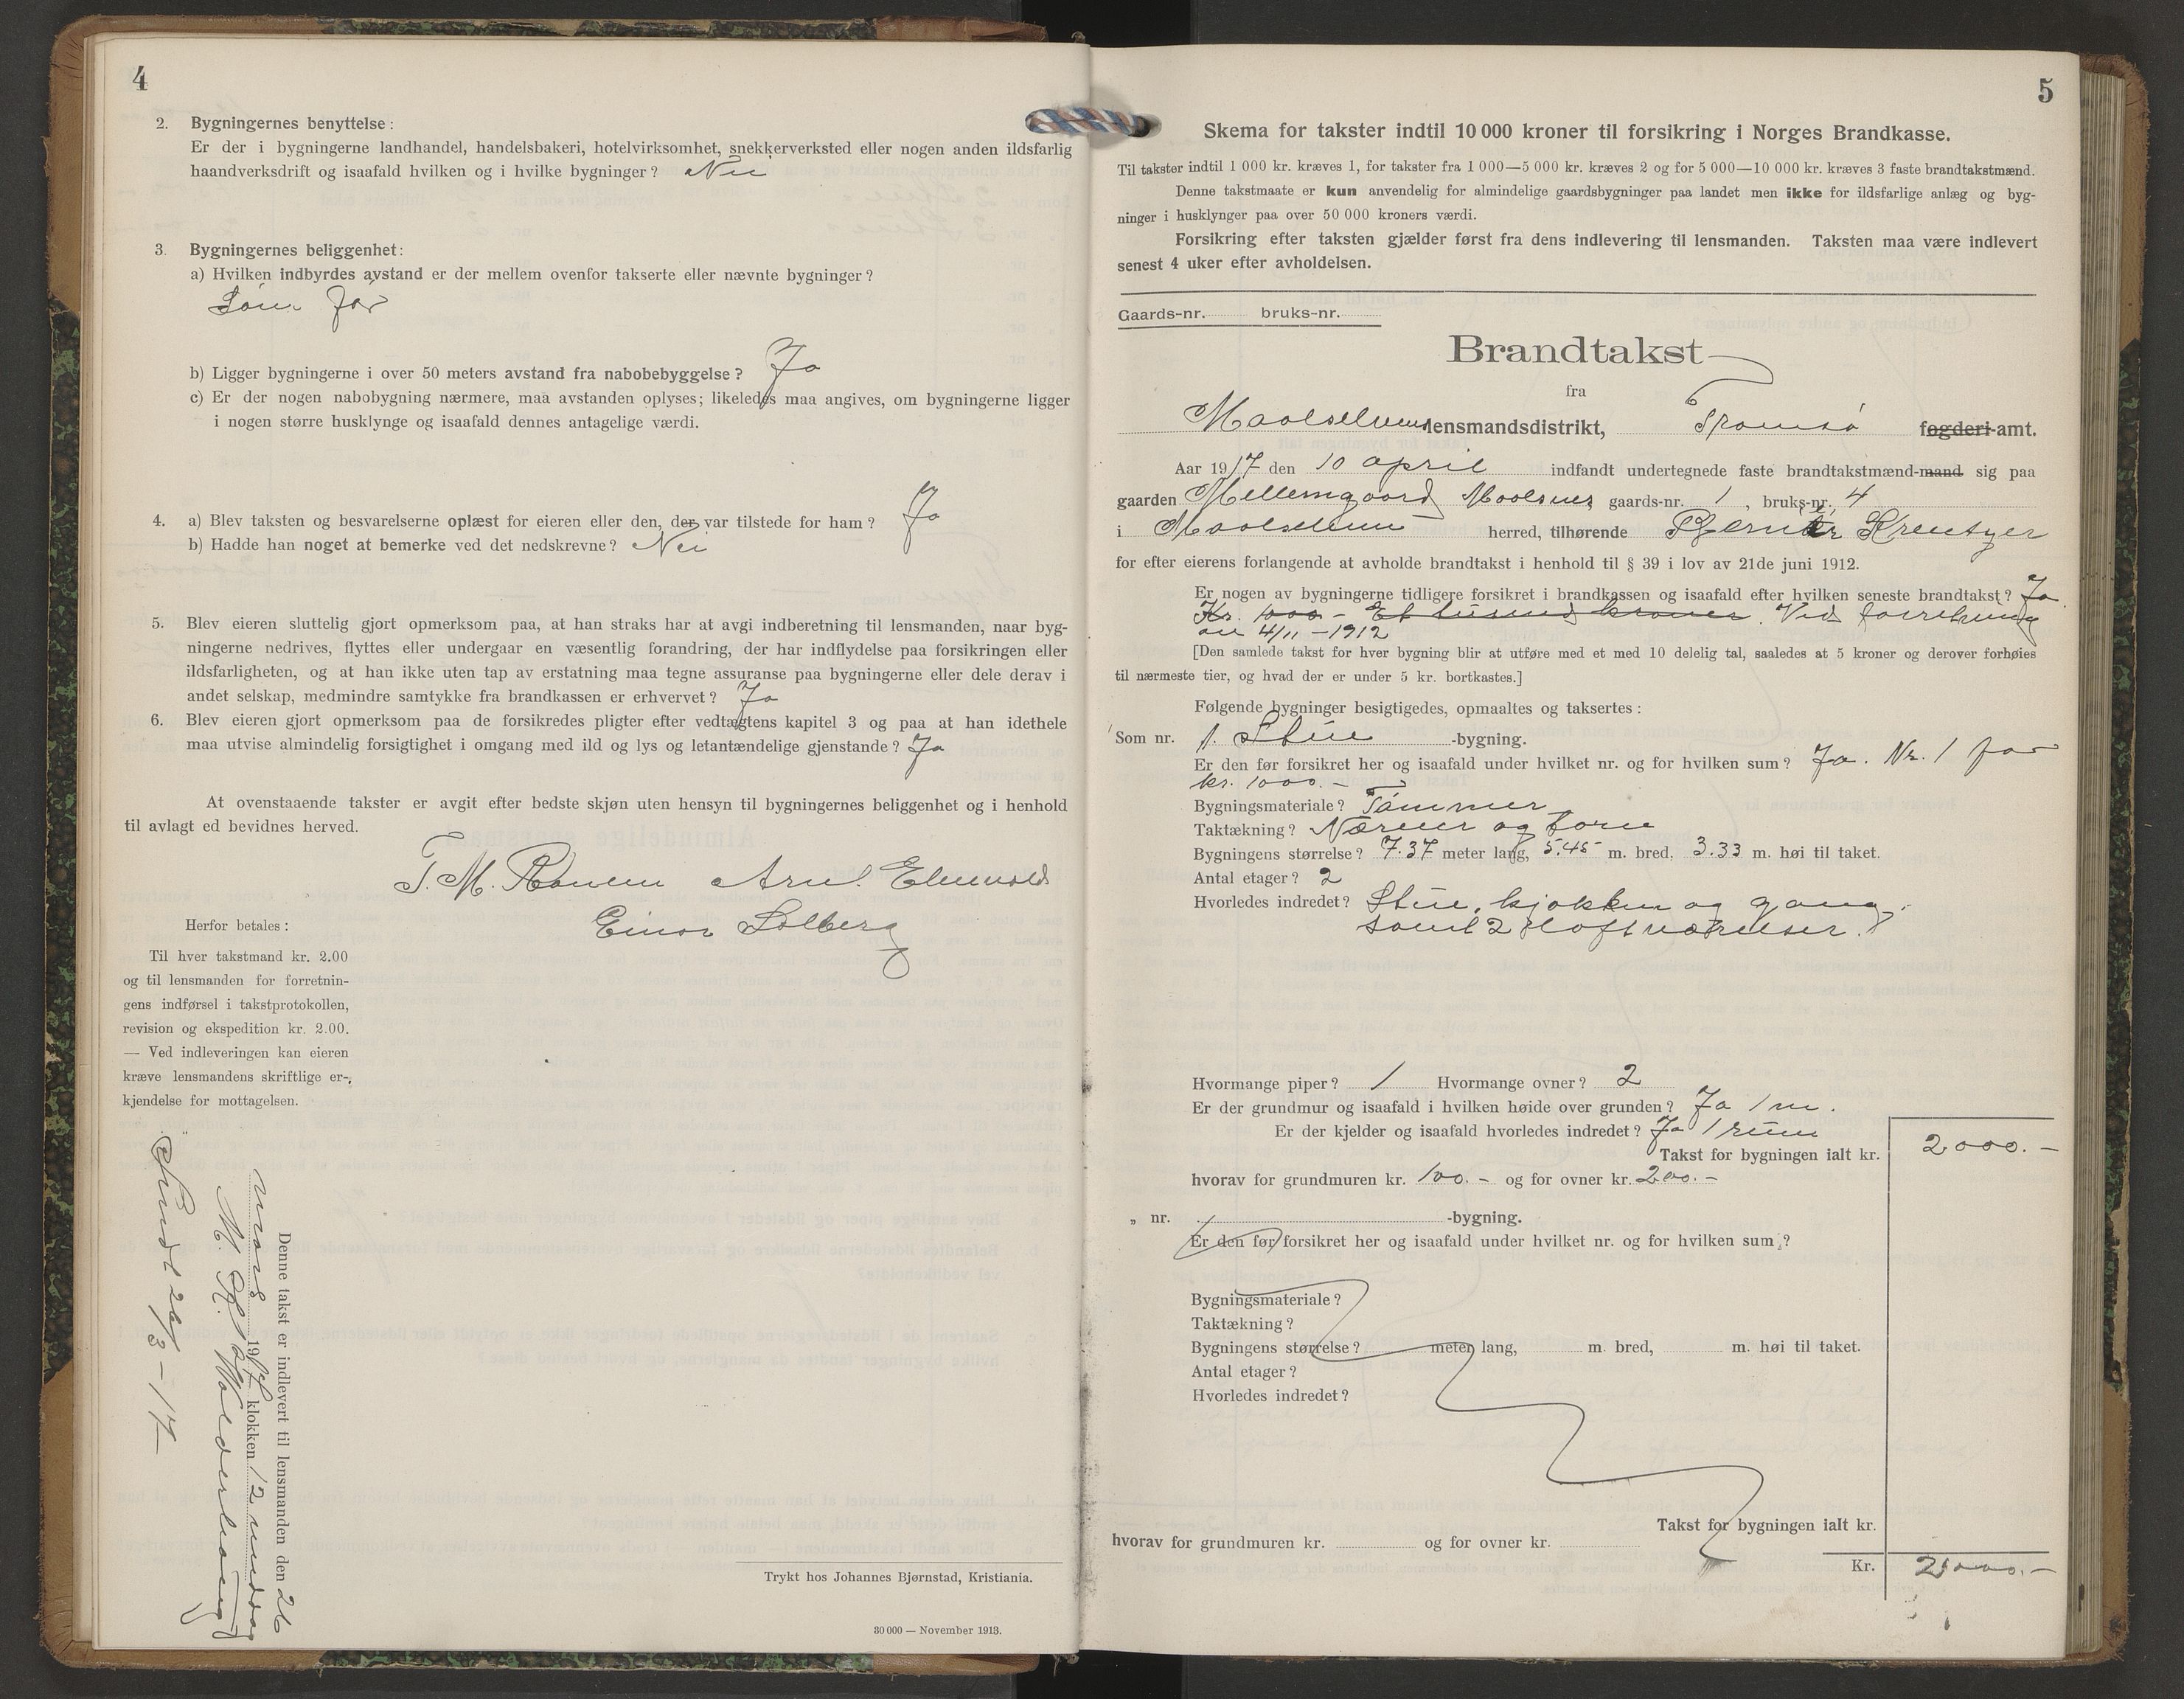 4
2. Bygningernes benyttelse:
Er der i bygningerne landhandel, handelsbakeri, hotelvirksomhet, snekkerverksted eller nogen anden ildsfarlig
haandverksdrift og isaafald hvilken og i hvilke bygninger? Nei
3. Bygningernes beliggenhet:
a) Hvilken indbyrdes avstand er der mellem ovenfor takserte eller nævnte bygninger?
Som før
b) Ligger bygningerne i over 50 meters avstand fra nabobebyggelse? Ja
c) Er der nogen nabobygning nærmere, maa avstanden oplyses; likeledes maa angives, om bygningerne ligger
i nogen større husklynge og isaafald dennes antagelige værdi.
4. a) Blev taksten og besvarelserne oplæst for eieren eller den, der var tilstede for ham? Ja
b) Hadde han noget at bemerke ved det nedskrevne? Nei
5. Blev eieren sluttelig gjort opmerksom paa, at han straks har at avgi indberetning til lensmanden, naar byg-
ningerne nedrives, flyttes eller undergaar en væsentlig forandring, der har indflydelse paa forsikringen eller
ildsfarligheten, og at han ikke uten tap av erstatning maa tegne assuranse paa bygningerne eller dele derav i
andet selskap, medmindre samtykke fra brandkassen er erhvervet? Ja
6. Blev eieren gjort opmerksom paa de forsikredes pligter efter vedtægtens kapitel 3 og paa at han idethele
maa utvise almindelig forsigtighet i omgang med ild og lys og letantændelige gjenstande? Ja
At ovenstaaende takster er avgit efter bedste skjøn uten hensyn til bygningernes beliggenhet og i henhold
til avlagt ed bevidnes herved.
T. M. Arnl.
Einar Solberg
Herfor betales:
Til hver takstmand kr. 2.00
og til lensmanden for forretnin-
gens indførsel i takstprotokollen,
revision og ekspedition kr. 2.00.
— Ved indleveringen kan eieren
kræve lensmandens skriftlige er-
kjendelse for mottagelsen.
Denne takst er indlevert til lensmanden den 26
mars 1917 klokken 12 middag
M.
Sendt 26/3 - 17
Trykt hos Johannes Bjørnstad, Kristiania.
30 000 — November 1913.
5
Skema for takster indtil 10 000 kroner til forsikring i Norges Brandkasse.
Til takster indtil 1 000 kr. kræves 1, for takster fra 1 000—5 000 kr. kræves 2 og for 5 000—10 000 kr. kræves 3 faste brandtakstmænd.
Denne takstmaate er kun anvendelig for almindelige gaardsbygninger paa landet men ikke for ildsfarlige anlæg og byg-
ninger i husklynger paa over 50 000 kroners værdi.
Forsikring efter taksten gjælder først fra dens indlevering til lensmanden. Taksten maa være indlevert
senest 4 uker efter avholdelsen.
Gaards-nr. bruks-nr.
Brandtakst
fra
Maalselvens lensmandsdistrikt, Tromsø fogderi-amt.
Aar 1917 den 10 april indfandt undertegnede faste brandtakstmænd-mand sig paa
gaarden Mellemgaard Maalsnes gaards-nr. 1, bruks-nr. 4
i Maalselven herred, tilhørende Krentzer
for efter eierens forlangende at avholde brandtakst i henhold til § 39 i lov av 21de juni 1912.
Er nogen av bygningerne tidligere forsikret i brandkassen og isaafald efter hvilken seneste brandtakst? Ja
Kr. 1000 - Et tusind kroner. Ved forretning
av 4/11 - 1912
[Den samlede takst for hver bygning blir at utføre med et med 10 delelig tal, saaledes at 5 kroner og derover forhøies
til nærmeste tier, og hvad der er under 5 kr. bortkastes.]
Følgende bygninger besigtigedes, opmaaltes og taksertes:
Som nr. 1. Stue -bygning.
Er den før forsikret her og isaafald under hvilket nr. og for hvilken sum? Ja. Nr. 1 for
kr. 1000.-
Bygningsmateriale? Tømmer
Taktækning? Næver og torv
Bygningens størrelse? 7.37 meter lang, 5.45 m. bred, 3.33 m. høi til taket.
Antal etager? 2
Hvorledes indredet? Stue, kjøkken og gang,
samt 2 loftværelser.
Hvormange piper? 1 Hvormange ovner? 2
Er der grundmur og isaafald i hvilken høide over grunden? Ja 1 m.
Er der kjelder og isaafald hvorledes indredet? Ja 1 rum
Takst for bygningen ialt kr. 2000.-
hvorav for grundmuren kr. 100.- og for ovner kr. 200.-
„ nr. -bygning.
Er den før forsikret her og isaafald under hvilket nr. og for hvilken sum?
Bygningsmateriale?
Taktækning?
Bygningens størrelse? meter lang, m. bred, m. høi til taket.
Antal etager?
Hvorledes indredet?
Takst for bygningen ialt kr.
hvorav for grundmuren kr. og for ovner kr.
Kr. 2000.-